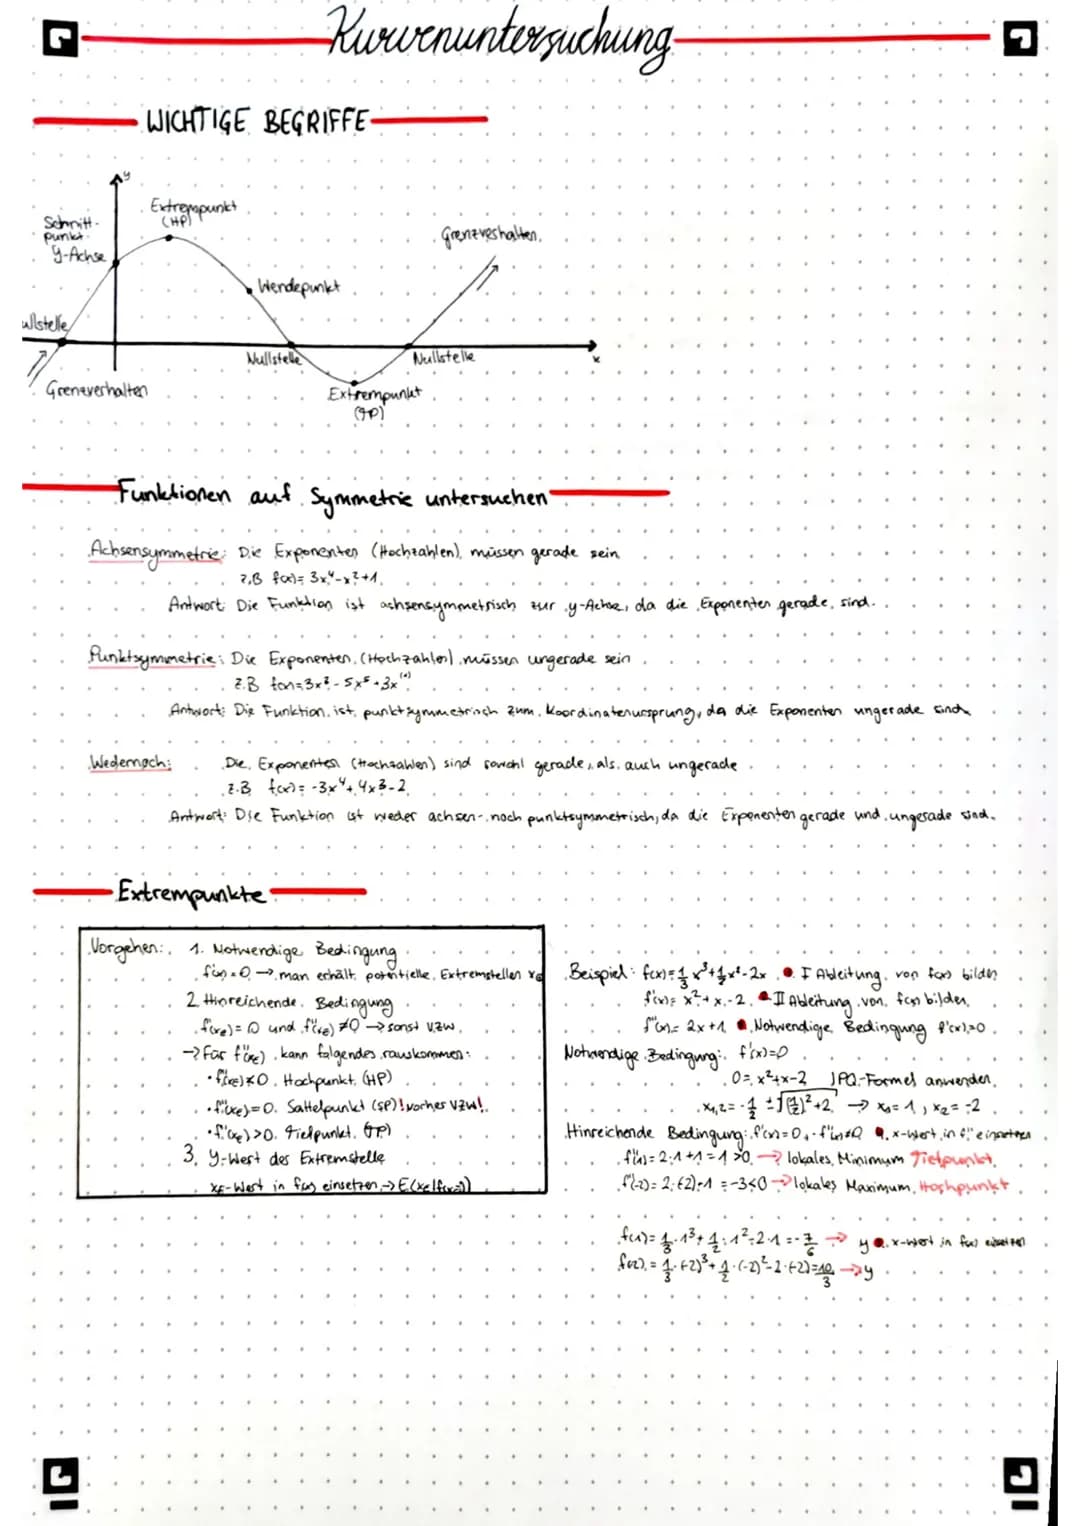 Kurvenuntersuchung
WICHTIGE BEGRIFFE
y
Extrempunkt
(HP)
Schnitt-
punkt
y-Achse
Grenzverhalten
Wendepunkt
ullstelle
Nullstelle
Nullstelle
x
Grenzverhalten
Extrempunkt
(TP)
Funktionen auf Symmetrie untersuchen
Achsensymmetrie: Die Exponenten (Hochzahlen) müssen gerade sein
z.B f(x)= 3x⁴-x²+1
Antwort: Die Funktion ist achsensymmetrisch zur y-Achse, da die Exponenten gerade sind.
Punktsymmetrie: Die Exponenten (Hochzahlen) müssen ungerade sein
z.B f(x)=3x³-5x⁵+3x⁽¹⁾
Antwort: Die Funktion ist punktsymmetrisch zum Koordinatenursprung, da die Exponenten ungerade sind
Wedernoch: Die Exponenten (Hochzahlen) sind sowohl gerade, als auch ungerade
z.B f(x)= -3x⁴+4x³-2
Antwort: Die Funktion ist weder achsen- noch punktsymmetrisch, da die Exponenten gerade und ungerade sind.
Extrempunkte
Vorgehen: 1. Notwendige Bedingung
f'(x)=0 → man erhält potentielle Extremstellen xe
2 Hinreichende Bedingung
f'(xe)=0 und f''(xe)≠0 → sonst VZW
→ Für f''(xe) kann folgendes rauskommen:
• f''(xe)<0 Hochpunkt (HP)
• f''(xe)=0 Sattelpunkt (SP)! vorher VZW!
• f''(xe)>0 Tiefpunkt (TP)
3. y-Wert des Extremstelle
xE-Wert in f(x) einsetzen → E(xe|f(xe))
Beispiel: f(x)=1/3 x³+1/2 x²-2x • I Ableitung von f(x) bilden
f'(x)= x²+x-2 • II Ableitung von f(x) bilden
f''(x)= 2x+1 • Notwendige Bedingung f'(x)=0
Notwendige Bedingung: f'(x)=0
0= x²+x-2 | PQ-Formel anwenden
x₁,₂= -1/2 ±√(1/2)²+2 → x₁= 1, x₂= -2
Hinreichende Bedingung: f'(x)=0, f''(x)≠0 • x-Wert in f'' einsetzen
f''(1)= 2·1+1=1>0 → lokales Minimum Tiefpunkt
f''(-2)= 2·(-2)+1 =-3<0 → lokales Maximum Hochpunkt
f(1)= 1/3·1³+1/2·1²-2·1 =-7/6 → y • x-Wert in f(x) einsetzen
f(-2)= 1/3·(-2)³+1/2·(-2)²-2·(-2)=10/3 → y